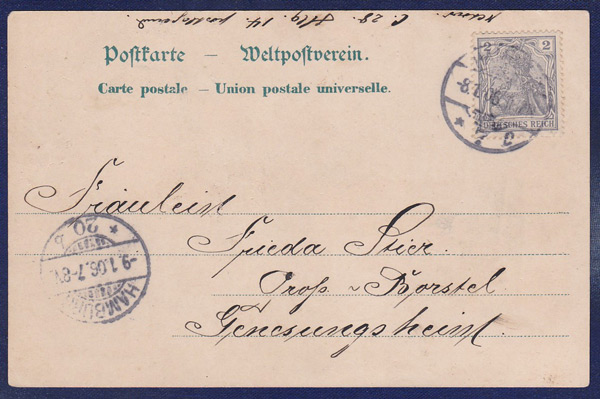 C. 28. Abg. 14. postlagernd.
Postkarte – Weltpostverein.
Carte postale – Union postale universelle.
2 2
DEUTSCHES REICH
8.1.06
Fräulein
Frieda Stier.
Groß-Borstel
Genesungsheim.
HAMBURG
-9.1.06.7-8V.
* 20 *